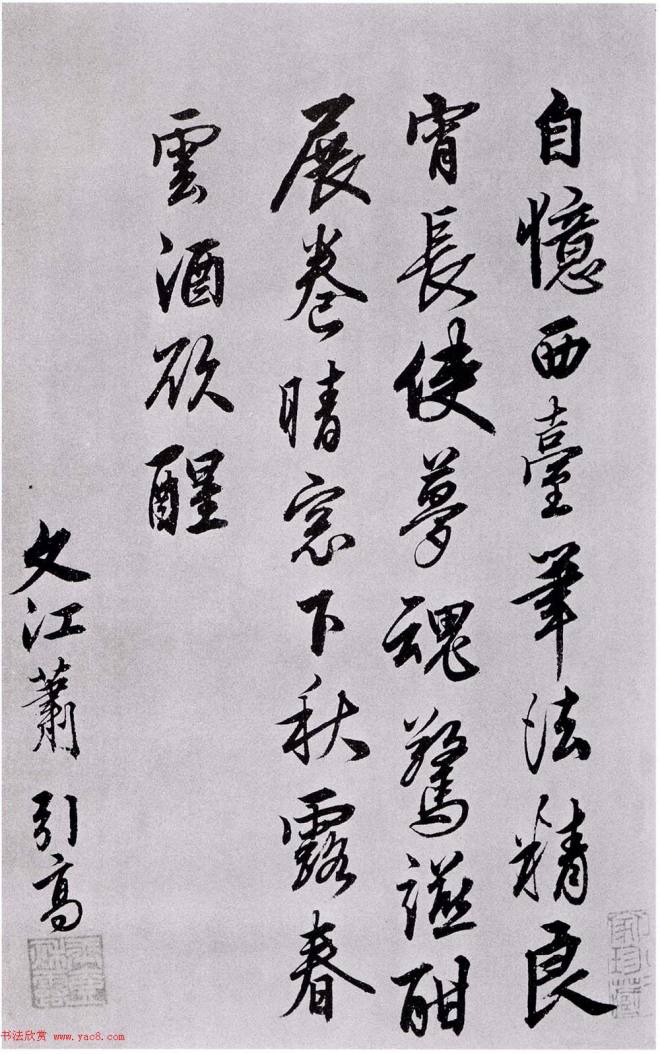 自憶西臺筆法精良
宵長使夢魂驚讌酣
展卷晴窓下秋露春
雲酒欲醒
文江蕭引高
书法欣赏 www.yac8.com